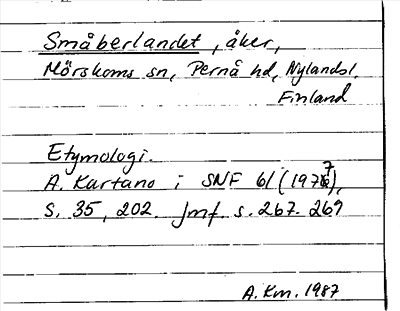 Småberlandet, åker,
Mörskoms sn, Pernå hd, Nylandsl.
Finland
Etymologi.
A. Kartano i SNF 61 (1977),
S. 35, 202. Jmf. s. 267-269
A. Km. 1987